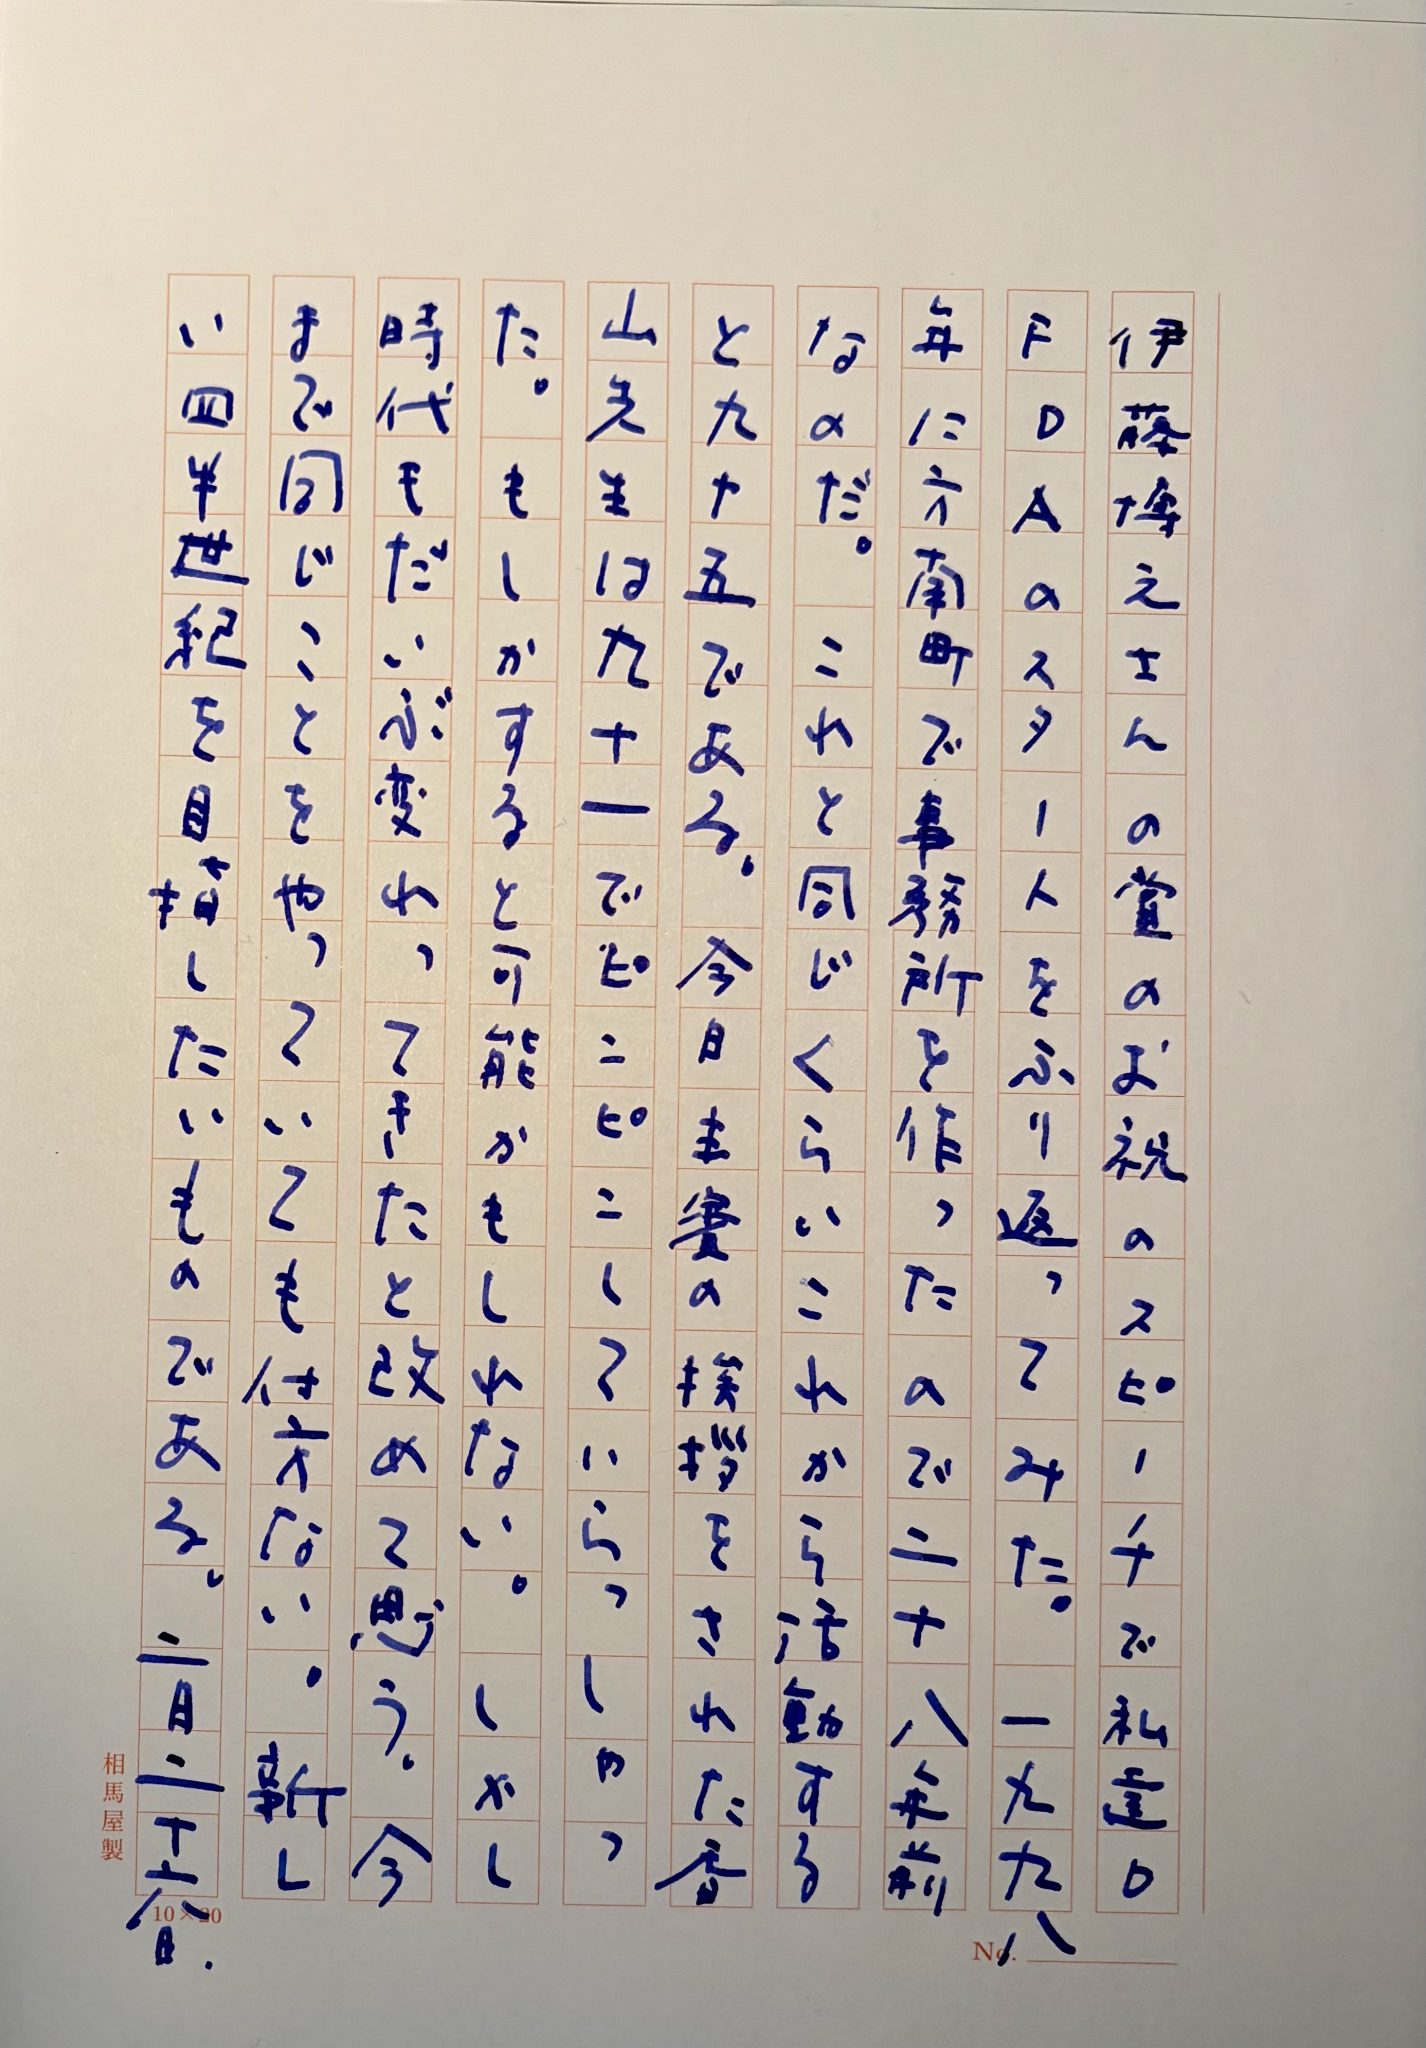 伊藤博之さんの賞のお祝のスピーチで私達D
FDAのスタート人をふり返ってみた。一九九八
年に方南町で事務所を作ったので二十八年前
なのだ。これと同じくらいこれから活動する
と九十五である。今日主賓の挨拶をされた香
山先生は九十一でピンピンしていらっしゃっ
た。もしかすると可能かもしれない。しかし
時代もだいぶ変わってきたと改めて思う。今
まで同じことをやっていても仕方ない。新し
い四半世紀を目指したいものである。二月二十六日.
相馬屋製
10×20
No.